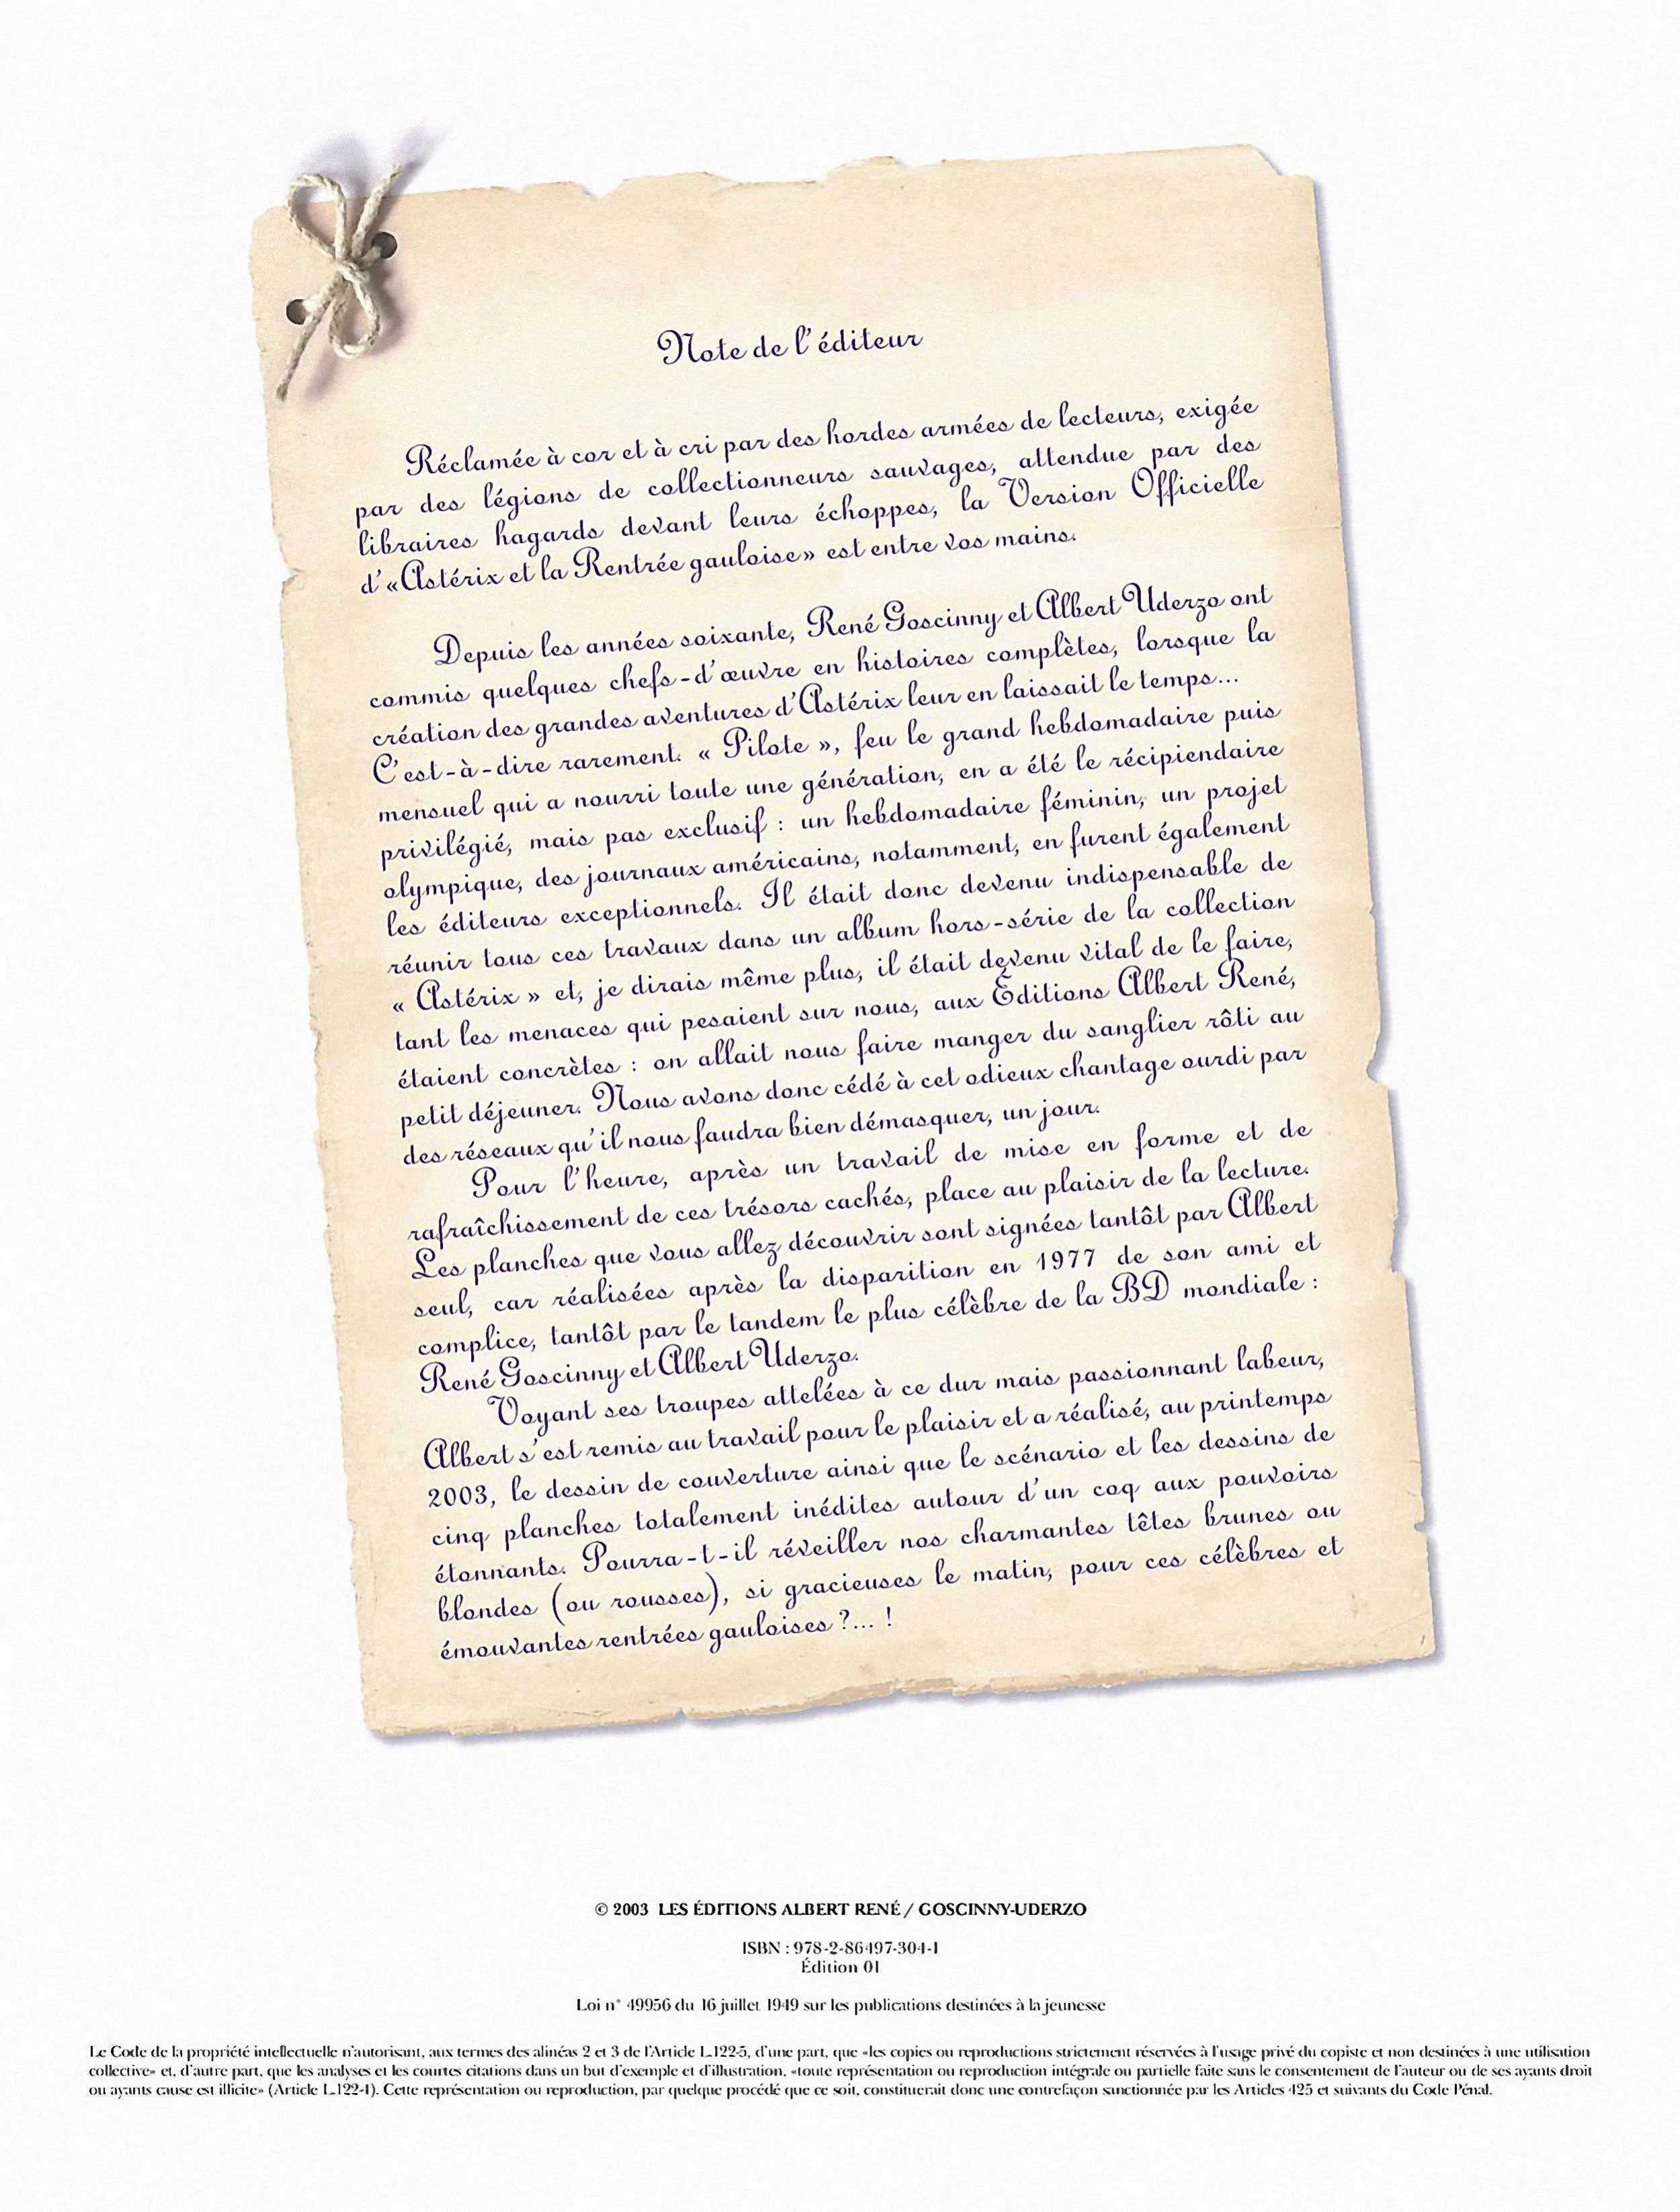 Note de l'éditeur
Réclamée à cor et à cri par des hordes armées de lecteurs, exigée
par des légions de collectionneurs sauvages, attendue par des
libraires hagards devant leurs échoppes, la Version Officielle
d'«Astérix et la Rentrée gauloise» est entre vos mains.
Depuis les années soixante, René Goscinny et Albert Uderzo ont
commis quelques chefs-d'œuvre en histoires complètes, lorsque la
création des grandes aventures d'Astérix leur en laissait le temps...
C'est-à-dire rarement. « Pilote », feu le grand hebdomadaire puis
mensuel qui a nourri toute une génération, en a été le récipiendaire
privilégié, mais pas exclusif : un hebdomadaire féminin, un projet
olympique, des journaux américains, notamment, en furent également
les éditeurs exceptionnels. Il était donc devenu indispensable de
réunir tous ces travaux dans un album hors-série de la collection
« Astérix » et, je dirais même plus, il était devenu vital de le faire,
tant les menaces qui pesaient sur nous, aux Éditions Albert René,
étaient concrètes : on allait nous faire manger du sanglier rôti au
petit déjeuner. Nous avons donc cédé à cet odieux chantage ourdi par
des réseaux qu'il nous faudra bien démasquer, un jour.
Pour l'heure, après un travail de mise en forme et de
rafraîchissement de ces trésors cachés, place au plaisir de la lecture.
Les planches que vous allez découvrir sont signées tantôt par Albert
seul, car réalisées après la disparition en 1977 de son ami et
complice, tantôt par le tandem le plus célèbre de la BD mondiale :
René Goscinny et Albert Uderzo.
Voyant ses troupes attelées à ce dur mais passionnant labeur,
Albert s'est remis au travail pour le plaisir et a réalisé, au printemps
2003, le dessin de couverture ainsi que le scénario et les dessins de
cinq planches totalement inédites autour d'un coq aux pouvoirs
étonnants. Pourra-t-il réveiller nos charmantes têtes brunes ou
blondes (ou rousses), si gracieuses le matin, pour ces célèbres et
émouvantes rentrées gauloises ?... !
© 2003 LES ÉDITIONS ALBERT RENÉ / GOSCINNY-UDERZO
ISBN : 978-2-86497-304-1
Édition 01
Loi n° 49956 du 16 juillet 1949 sur les publications destinées à la jeunesse
Le Code de la propriété intellectuelle n'autorisant, aux termes des alinéas 2 et 3 de l'Article L.122-5, d'une part, que «les copies ou reproductions strictement réservées à l'usage privé du copiste et non destinées à une utilisation
collective» et, d'autre part, que les analyses et les courtes citations dans un but d'exemple et d'illustration, «toute représentation ou reproduction intégrale ou partielle faite sans le consentement de l'auteur ou de ses ayants droit
ou ayants cause est illicite» (Article L.122-4). Cette représentation ou reproduction, par quelque procédé que ce soit, constituerait donc une contrefaçon sanctionnée par les Articles 425 et suivants du Code Pénal.